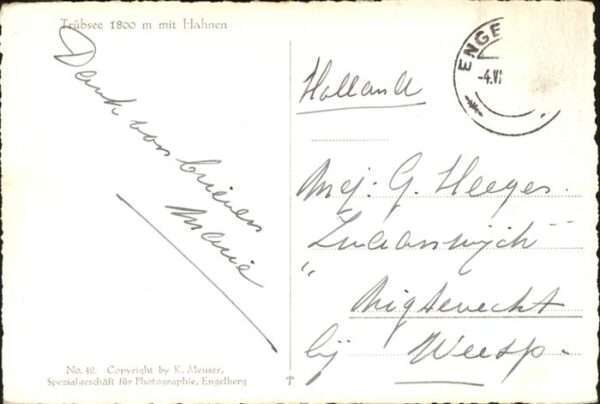 Trübsee 1800 m mit Hahnen
Dank voor brieven
Marie
No. 42. Copyright by K. Meuser,
Spezialgeschäft für Photographie, Engelberg
ENGE
-4.VI
Holland
Mej: G. Heeges.
"
Nigtevecht
bij Weesp.